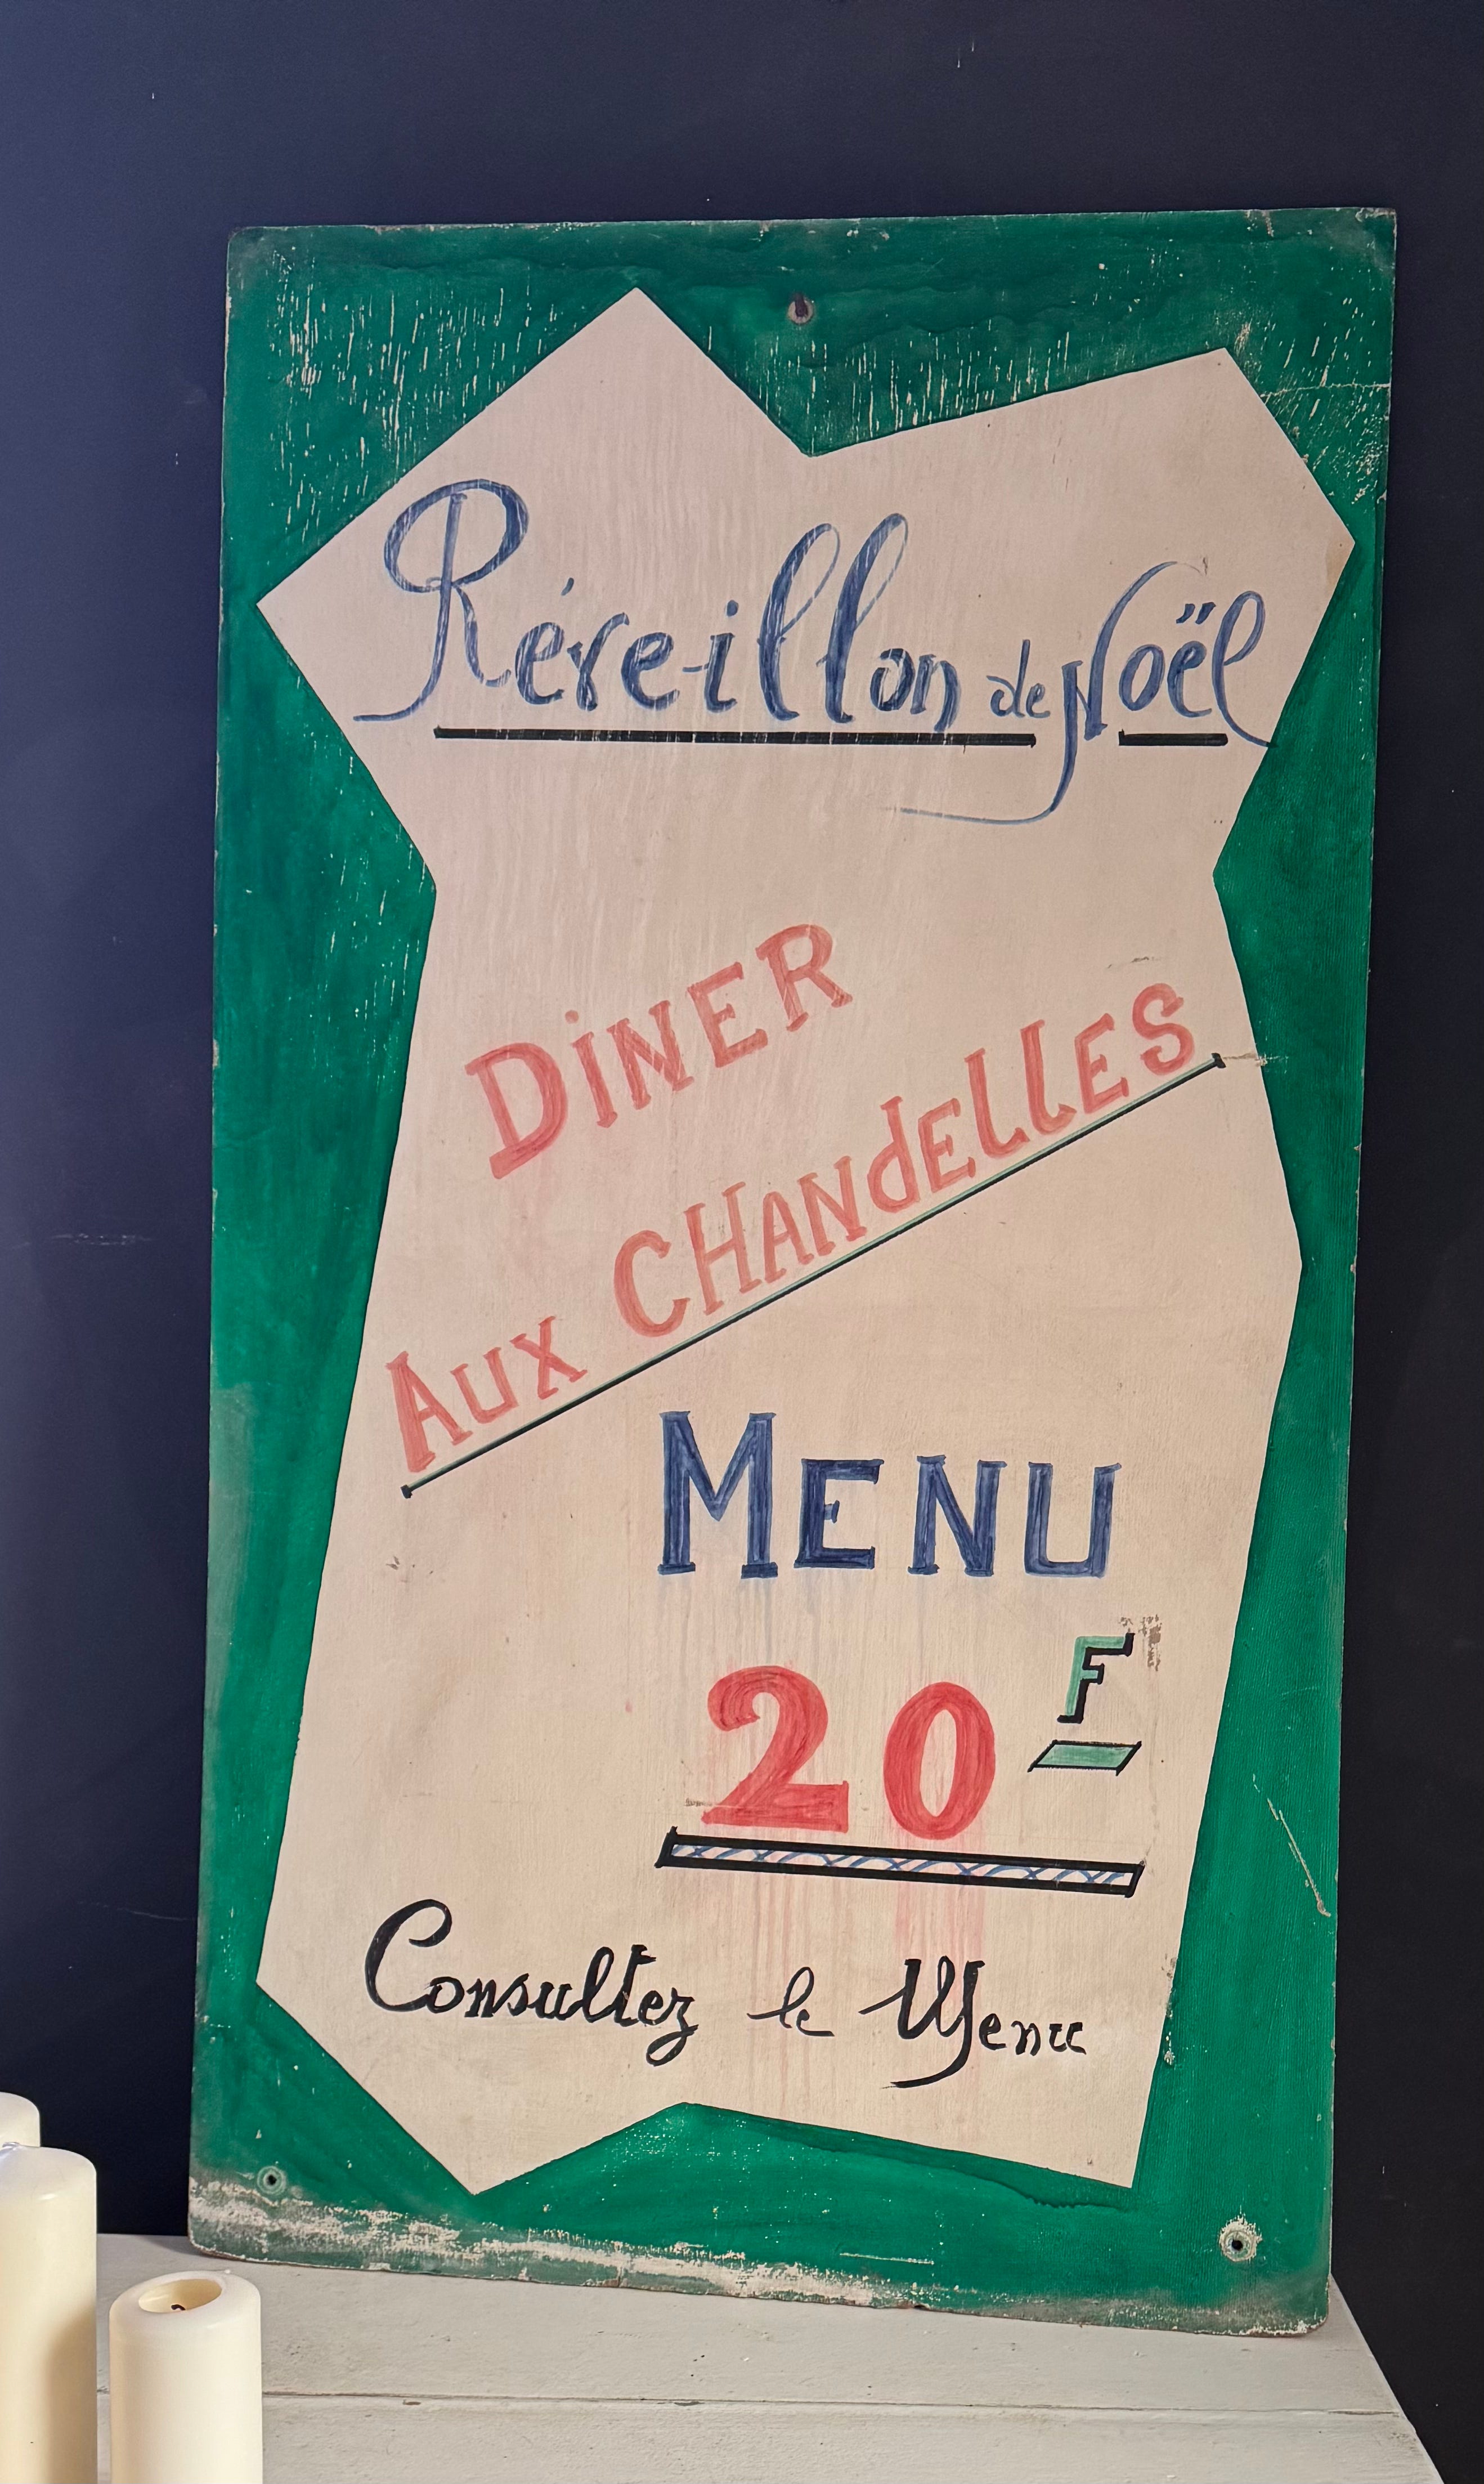 Réveillon de Noël
DiNER
AUX CHANdELLES
MENU
20 F
Consultez le Menu